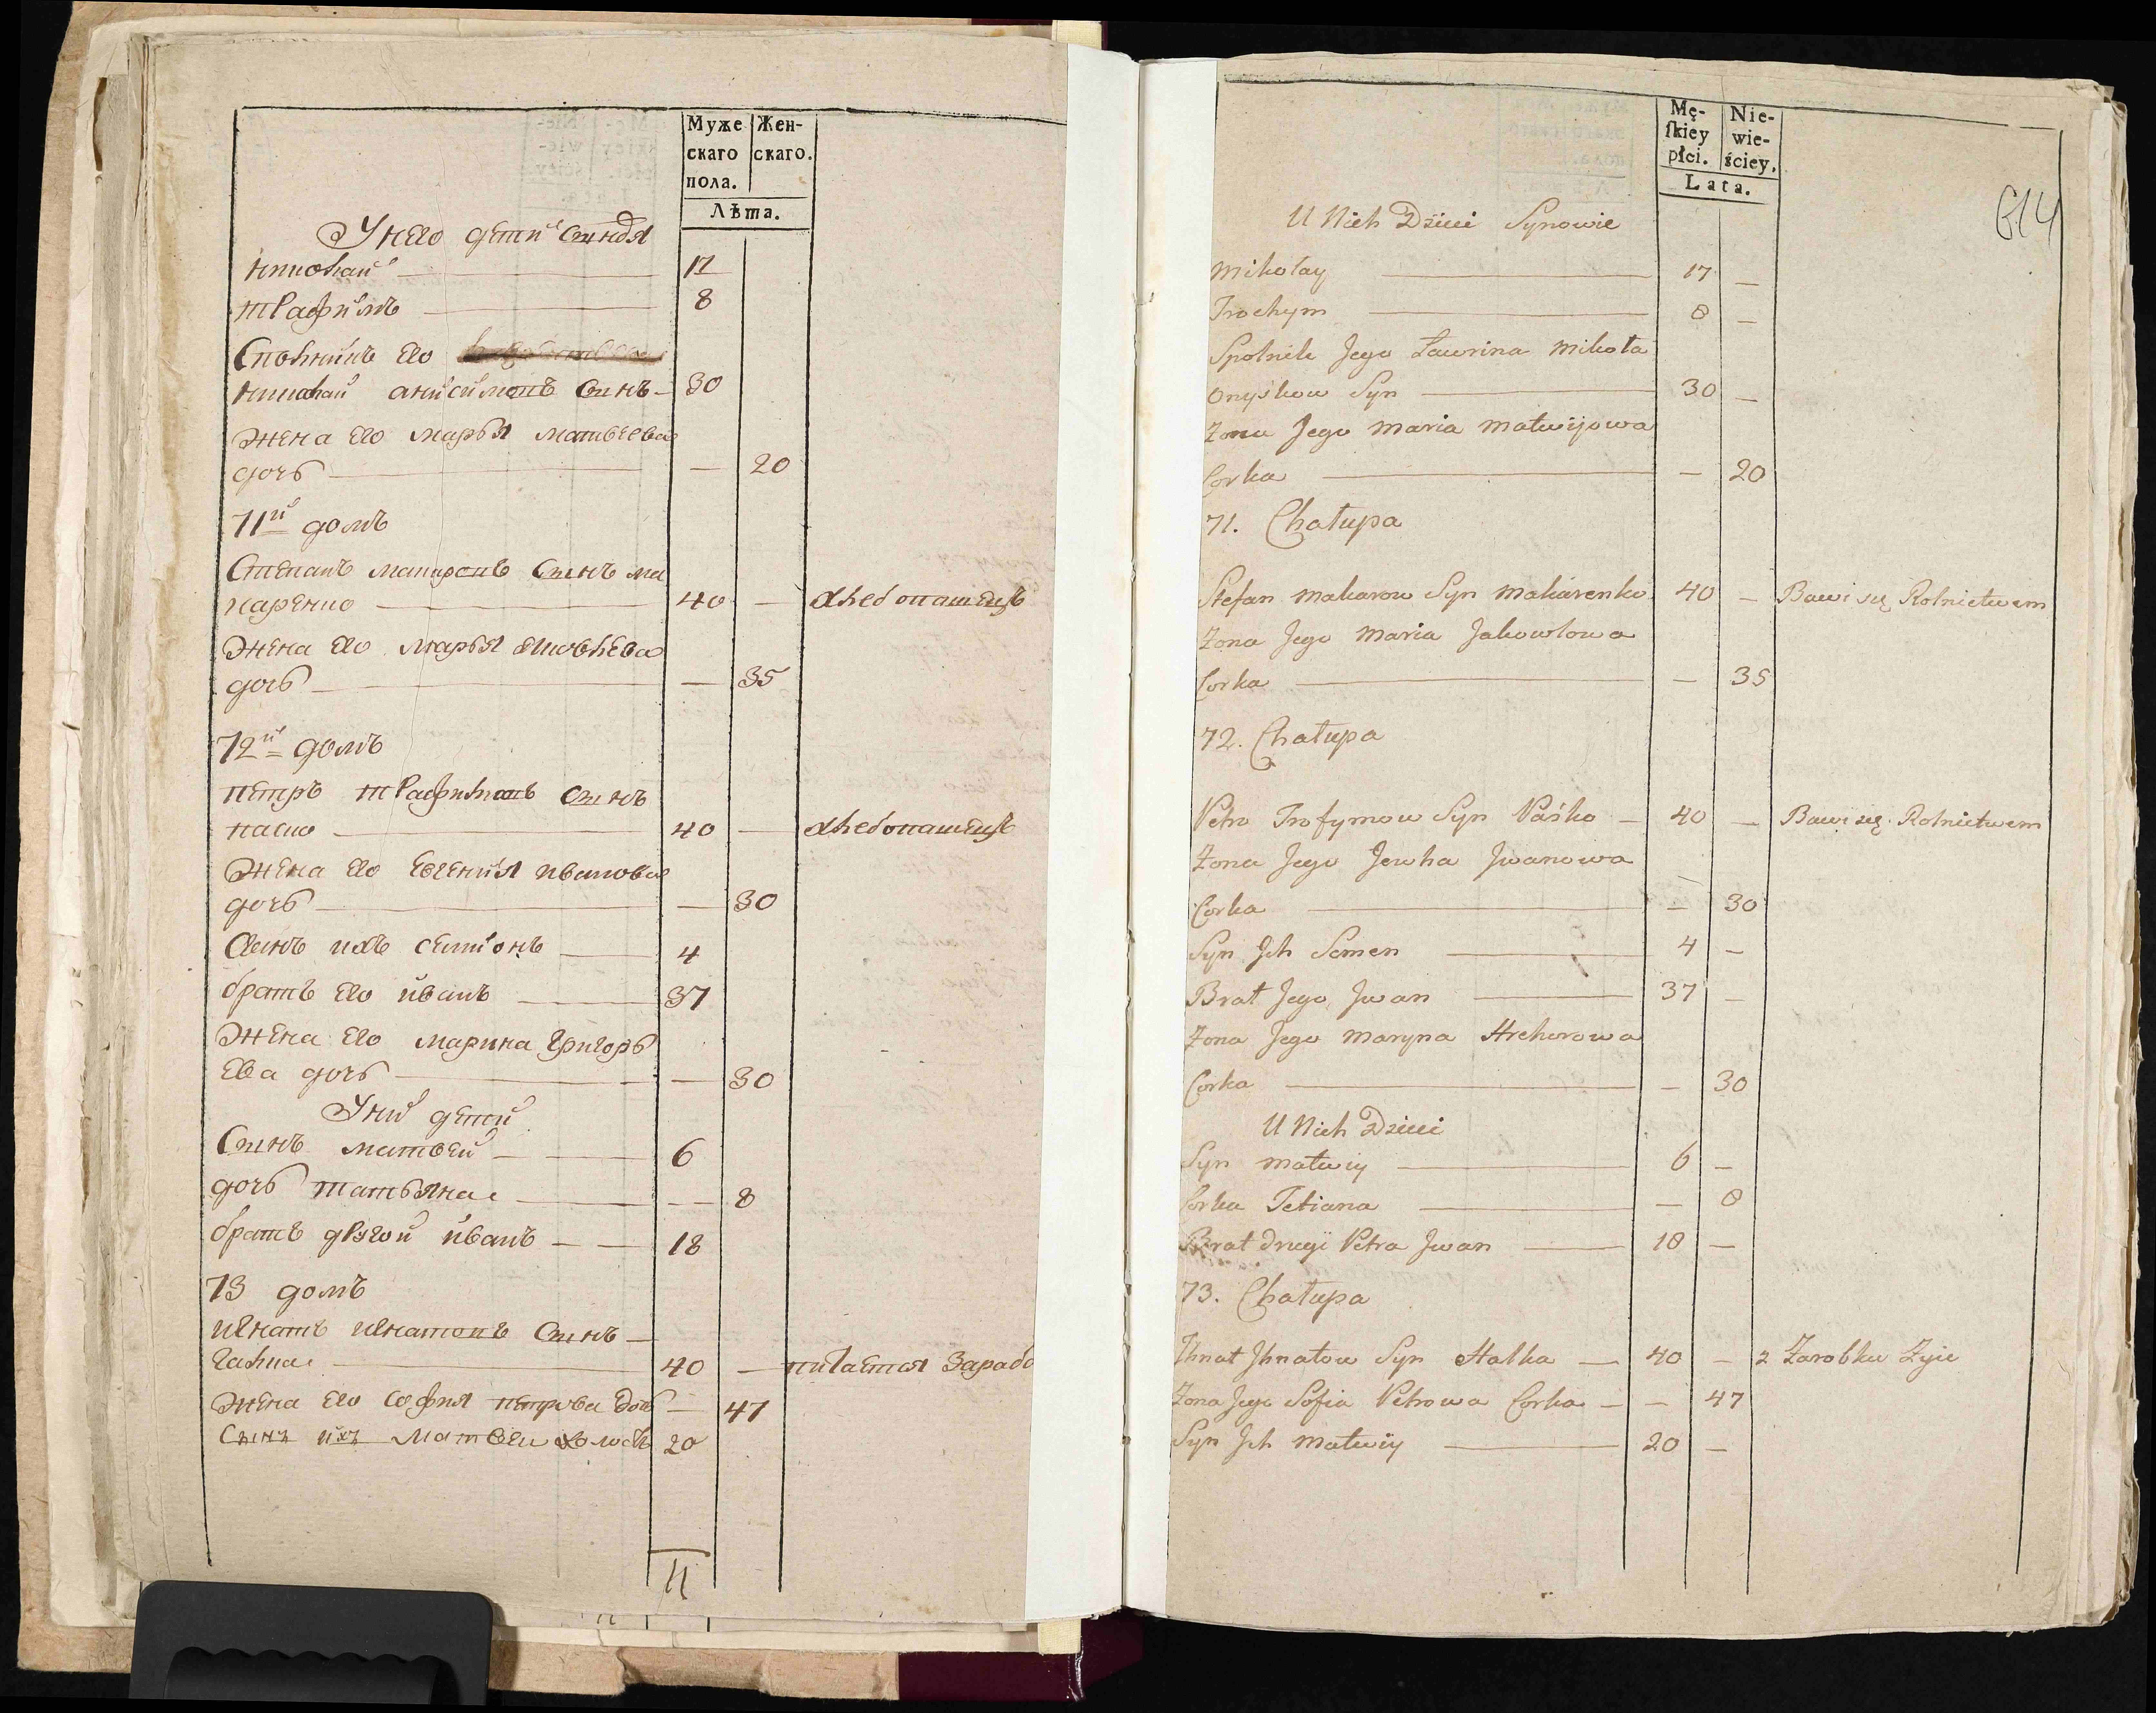 Муже
скаго
пола.
Жен-
скаго.
Лѣта.
У него дети синовя
николай 17
трафимъ 8
Сполникъ Его
николай анисимовъ Синъ 30
жена Его марья матвеева
дочь — 20
71й домъ
Степанъ макаровъ Синъ ма
каренко 40 — хлебопашецъ
жена Его марья яковлева
дочь — 35
72й домъ
петръ трафимовъ Синъ
паско 40 — хлебопашецъ
жена Его Евгения иванова
дочь — 30
Синъ ихъ семионъ 4
братъ Его иванъ 37
жена Его марина григорь
ева дочь — 30
У них детей
Синъ матвей 6
дочь татьяна — 8
братъ другой иванъ 18
73 домъ
игнатъ игнатовъ Синъ
галка 40 — питается Зарабо
жена Его софия петрова дочь — 47
Сынъ ихъ матвеи холостъ 20
11
614
Mę-
skiey
płci.
Nie-
wie-
ściey.
Lata.
U Nich Dzieci Synowie
Mikołay 17 —
Trochym 8 —
Spolnik Jego Ławrina Mikoła
Onyśkow Syn 30 —
Zona Jego Maria Matwijowa
Corka — 20
71. Chałupa
Stefan Makarow Syn Makarenko 40 — Bawi się Rolnictwem
Zona Jego Maria Jakowlowa
Corka — 35
72. Chałupa
Petro Trofymow Syn Paśko — 40 — Bawi się Rolnictwem
Zona Jego Jewha Jwanowa
Corka — 30
Syn Jch Semen 4 —
Brat Jego Jwan 37 —
Zona Jego Maryna Hrehorowa
Corka — 30
U Nich Dzieci
Syn Matwiy 6 —
Corka Tetiana — 8
Brat drugi Petra Jwan 18 —
73. Chałupa
Jhnat Jhnatow Syn Halka — 40 — z Zarobku Zyie
Zona Jego Sofia Petrowa Corka — — 47
Syn Jch Matwiy 20 —